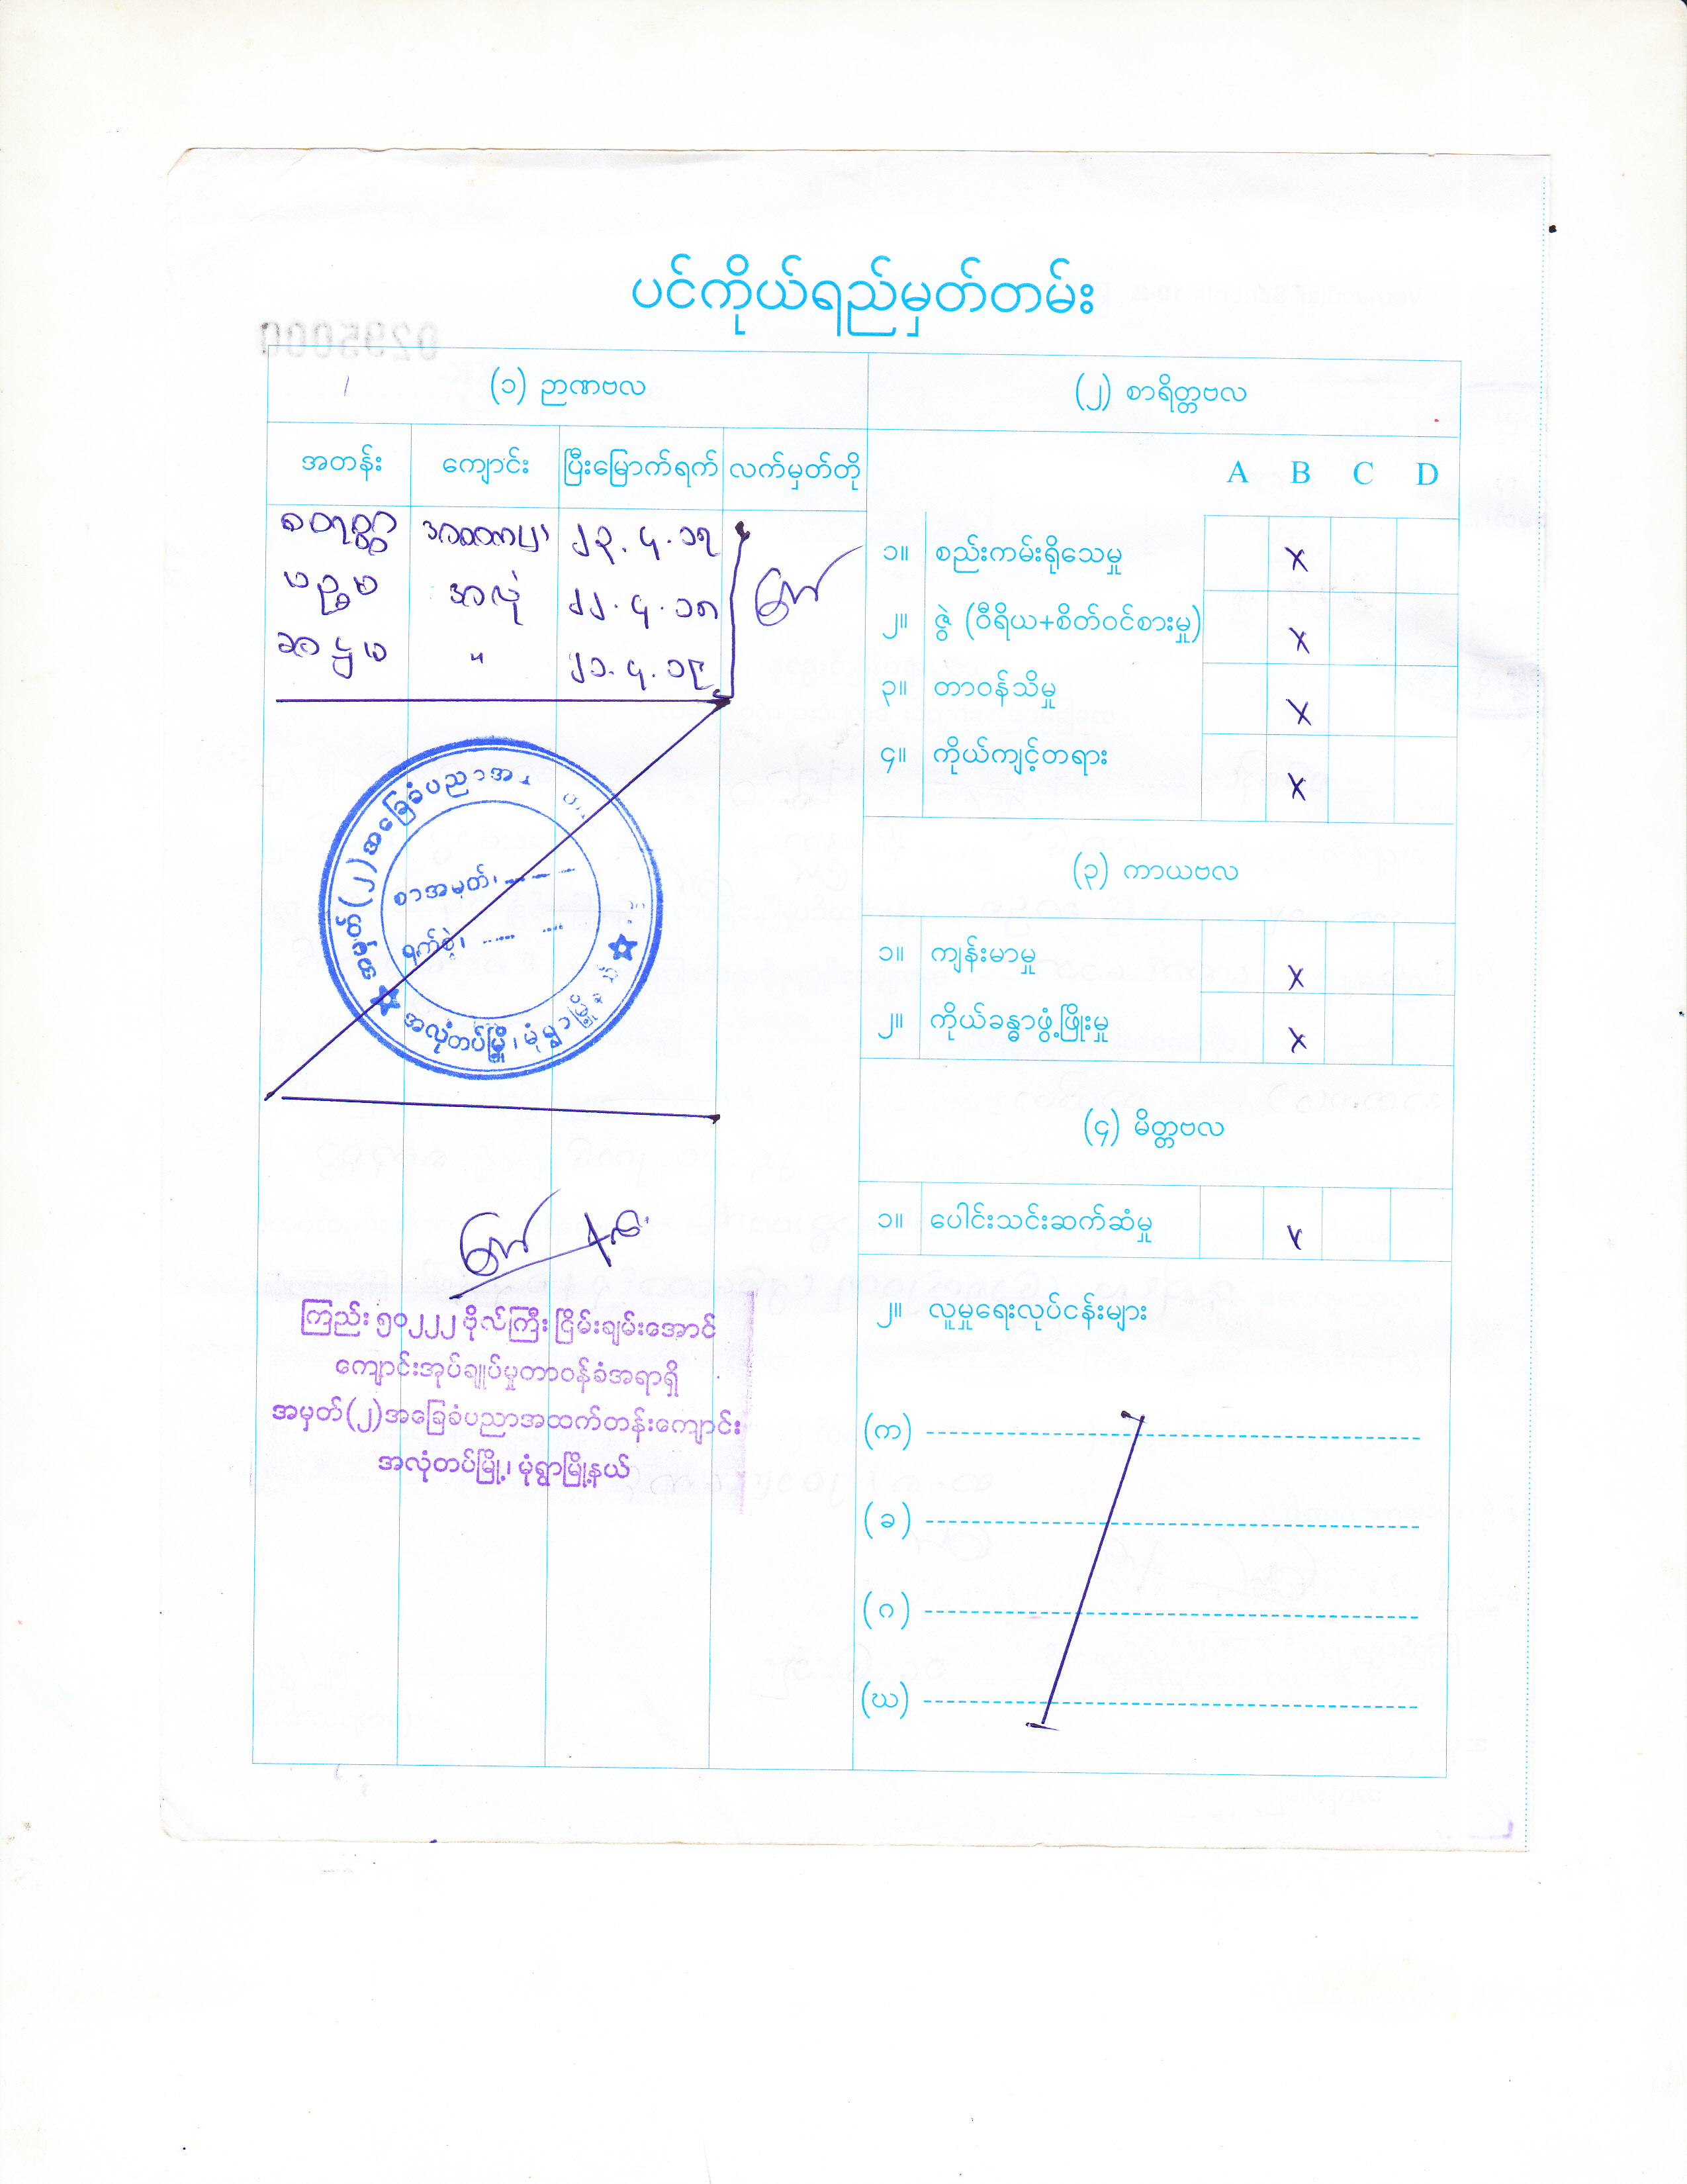 ပင်ကိုယ်ရည်မှတ်တမ်း
0295000
(၁) ဉာဏဗလ
အတန်း ကျောင်း ပြီးမြောက်ရက် လက်မှတ်တို
စတုတ္ထ ၂၃.၄.၁၇
ပဉ္စမ အလုံ ၂၂.၄.၁၈
ဆဋ္ဌမ " ၂၁.၄.၁၉
အမှတ်(၂)အခြေခံပညာအ
စာအမှတ်၊
ရက်စွဲ၊
အလုံတပ်မြို့၊ မုံရွာမြို့
ကြည်း ၅၀၂၂၂ ဗိုလ်ကြီး ငြိမ်းချမ်းအောင်
ကျောင်းအုပ်ချုပ်မှုတာဝန်ခံအရာရှိ
အမှတ်(၂)အခြေခံပညာအထက်တန်းကျောင်း
အလုံတပ်မြို့၊ မုံရွာမြို့နယ်
(၂) စာရိတ္တဗလ
A B C D
၁။ စည်းကမ်းရိုသေမှု X
၂။ ဇွဲ (ဝီရိယ+စိတ်ဝင်စားမှု) X
၃။ တာဝန်သိမှု X
၄။ ကိုယ်ကျင့်တရား X
(၃) ကာယဗလ
၁။ ကျန်းမာမှု X
၂။ ကိုယ်ခန္ဓာဖွံ့ဖြိုးမှု X
(၄) မိတ္တဗလ
၁။ ပေါင်းသင်းဆက်ဆံမှု X
၂။ လူမှုရေးလုပ်ငန်းများ
(က)
(ခ)
(ဂ)
(ဃ)